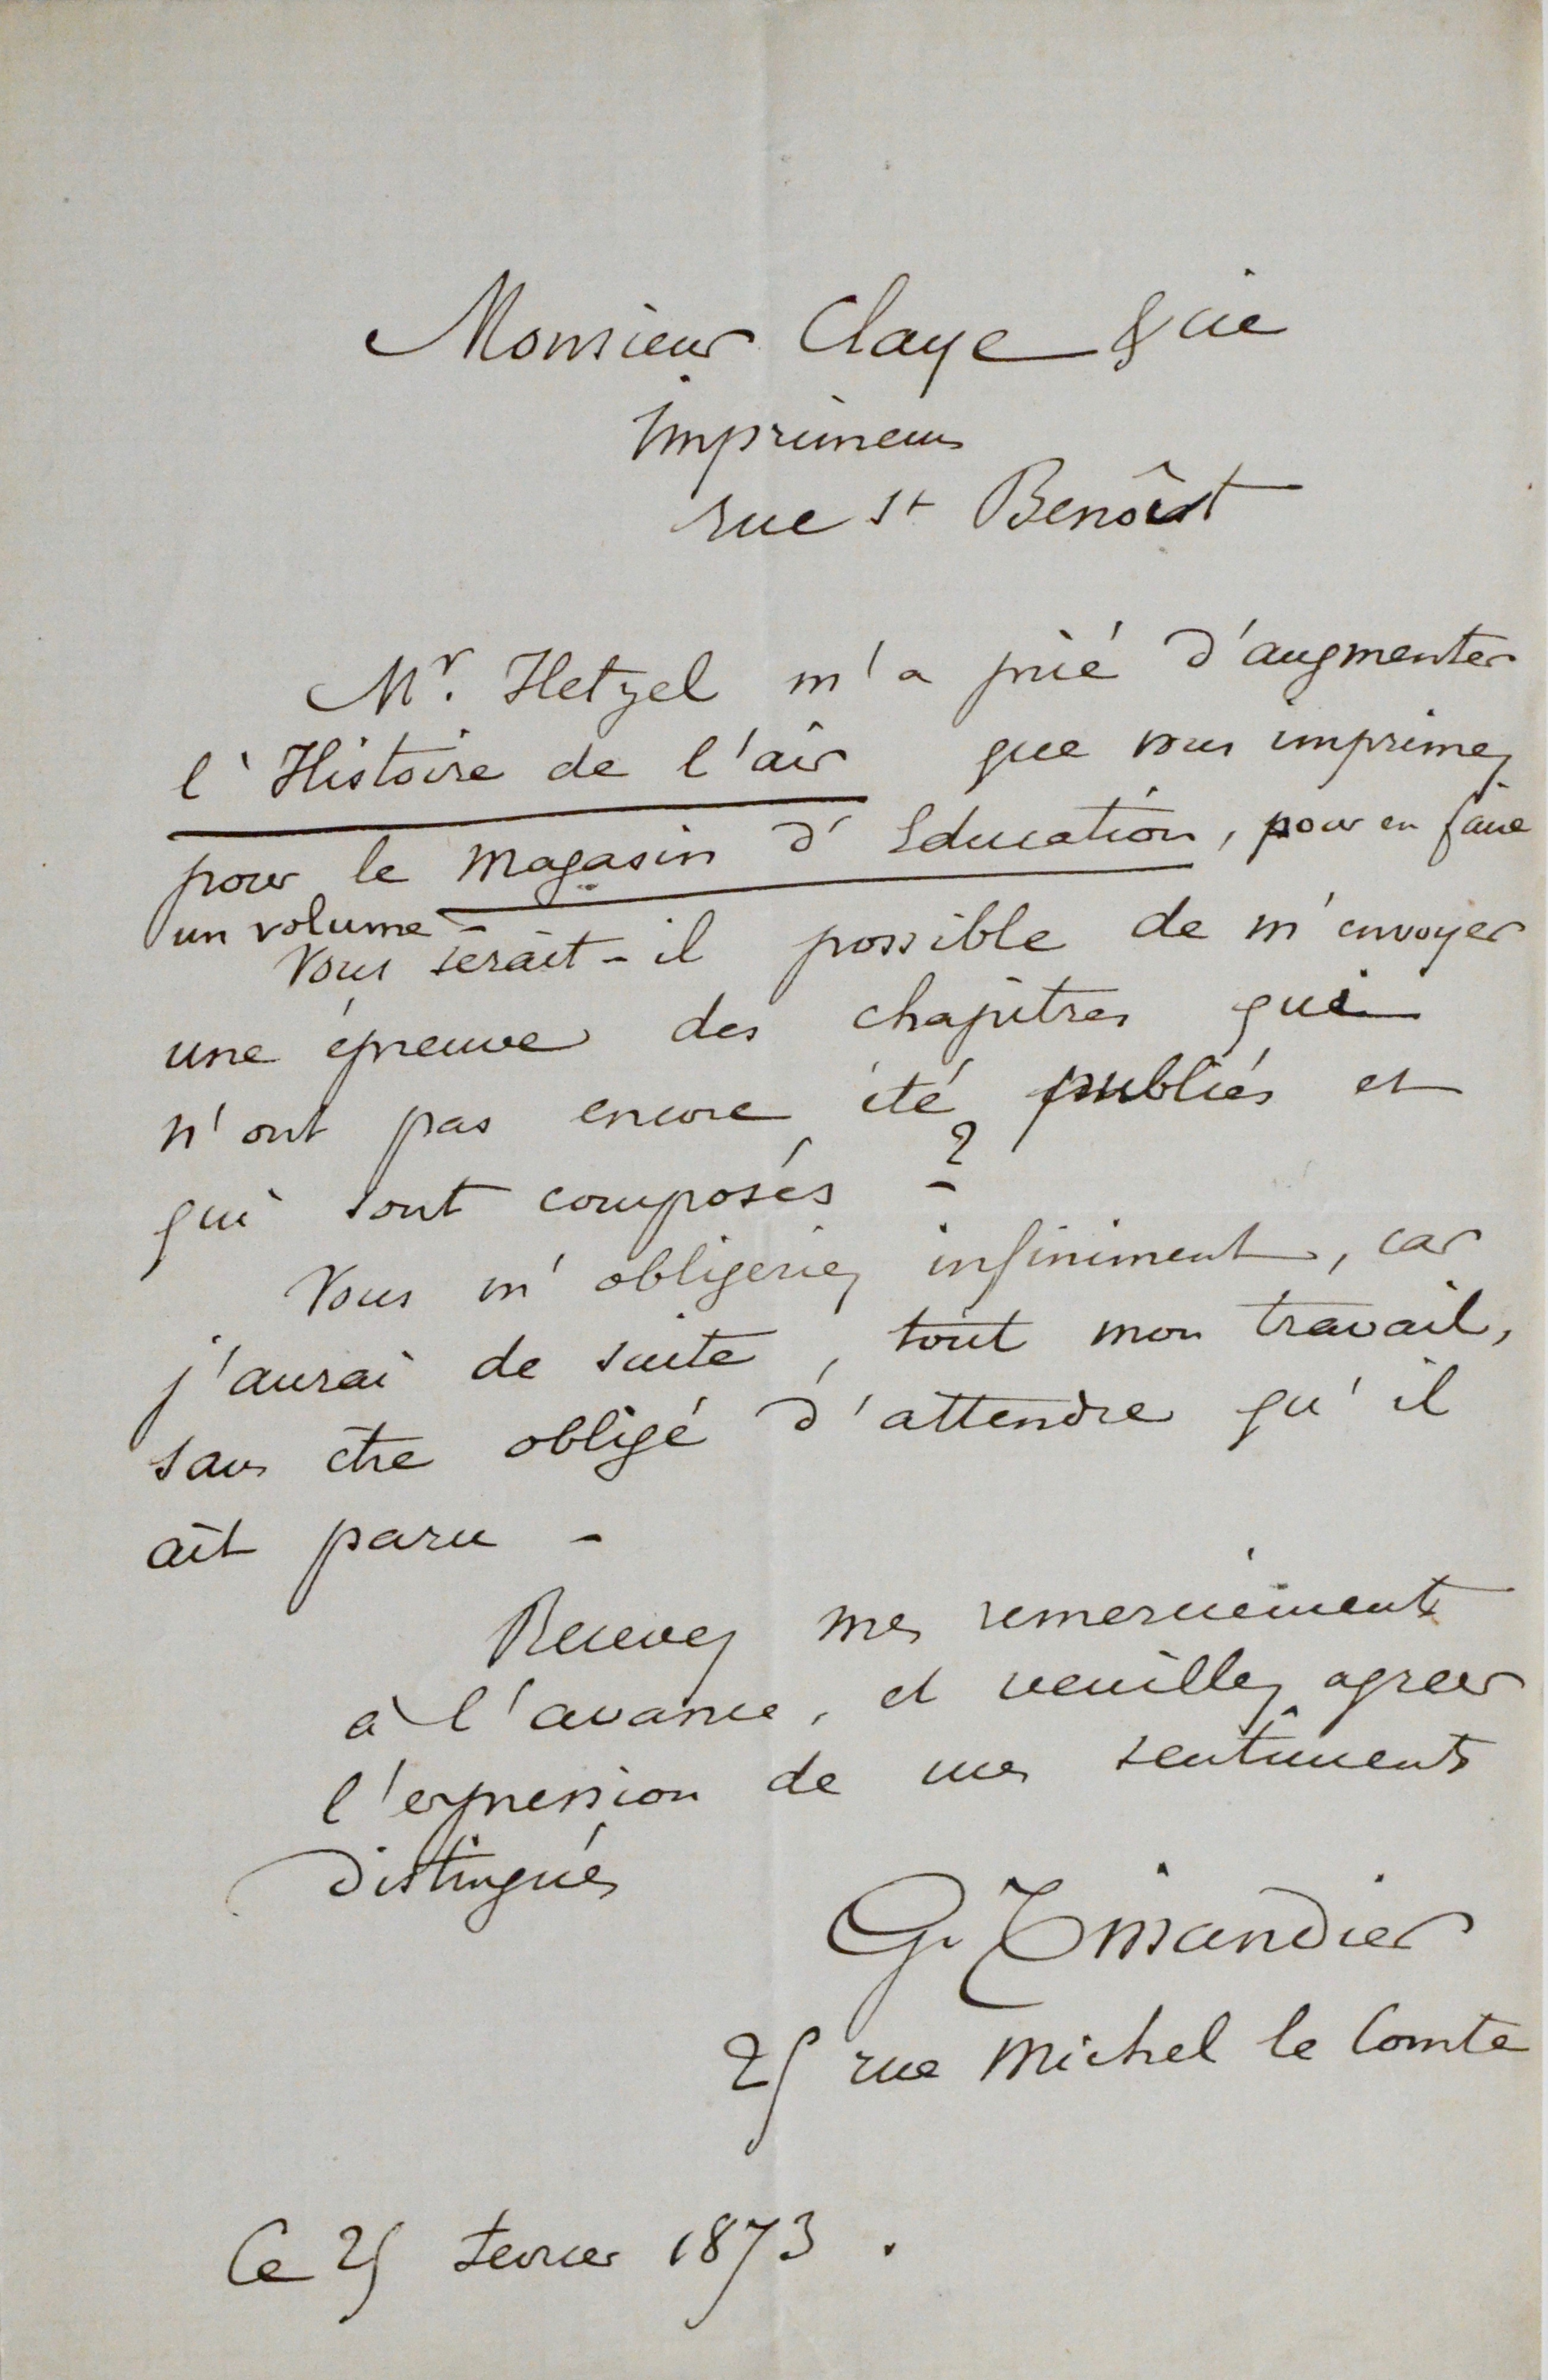 Monsieur Claye & cie
Imprimeur
rue St Benoist
Mr. Hetzel m'a prié d'augmenter
l'Histoire de l'air que vous imprimez
pour le Magasin d'Education, pour en faire
un volume -
Vous serait-il possible de m'envoyer
une épreuve des chapitres qui
n'ont pas encore été publiés et
qui sont composés ?
Vous m'obligeriez infiniment, car
j'aurai de suite, tout mon travail,
sans être obligé d'attendre qu'il
ait paru -
Recevez mes remerciements
à l'avance, et veuillez agréer
l'expression de mes sentiments
distingués
G. Tissandier
25 rue Michel le Comte
Ce 25 fevrier 1873.